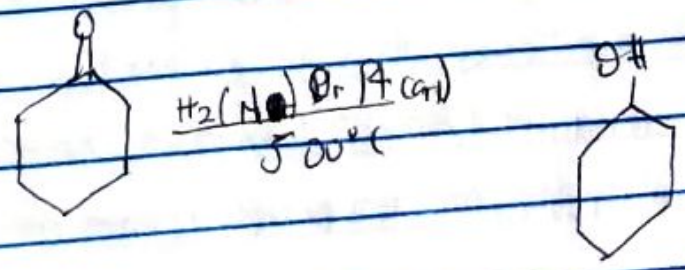 O
H2(N) Or Pt (cat)
500°C
OH